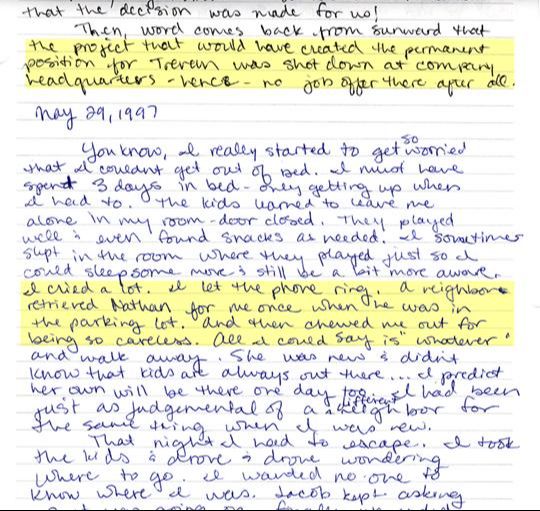 that the decision was made for us!
Then, word comes back from sunward that
the project that would have created the permanent
position for Trevein was shot down at company
headquarters - hence - no job offer there after all.
May 29, 1997
You know, I really started to get so worried
that I couldnt get out of bed. I must have
spent 3 days in bed - only getting up when
I had to. The kids learned to leave me
alone in my room - door closed. They played
well & even found snacks as needed. I sometimes
slept in the room where they played just so I
could sleep some more & still be a bit more aware.
I cried a lot. I let the phone ring. A neighbor
retrieved Nathan for me once when he was in
the parking lot. And then chewed me out for
being so careless. All I could say is "whatever"
and walk away. She was new & didn't
know that kids are always out there... I predict
her own will be there one day too. I had been
just as judgemental of a different neighbor for
the same thing when I was new.
That night I had to escape. I took
the kids & drove & drove wondering
where to go. I wanted no one to
know where I was. Jacob kept asking